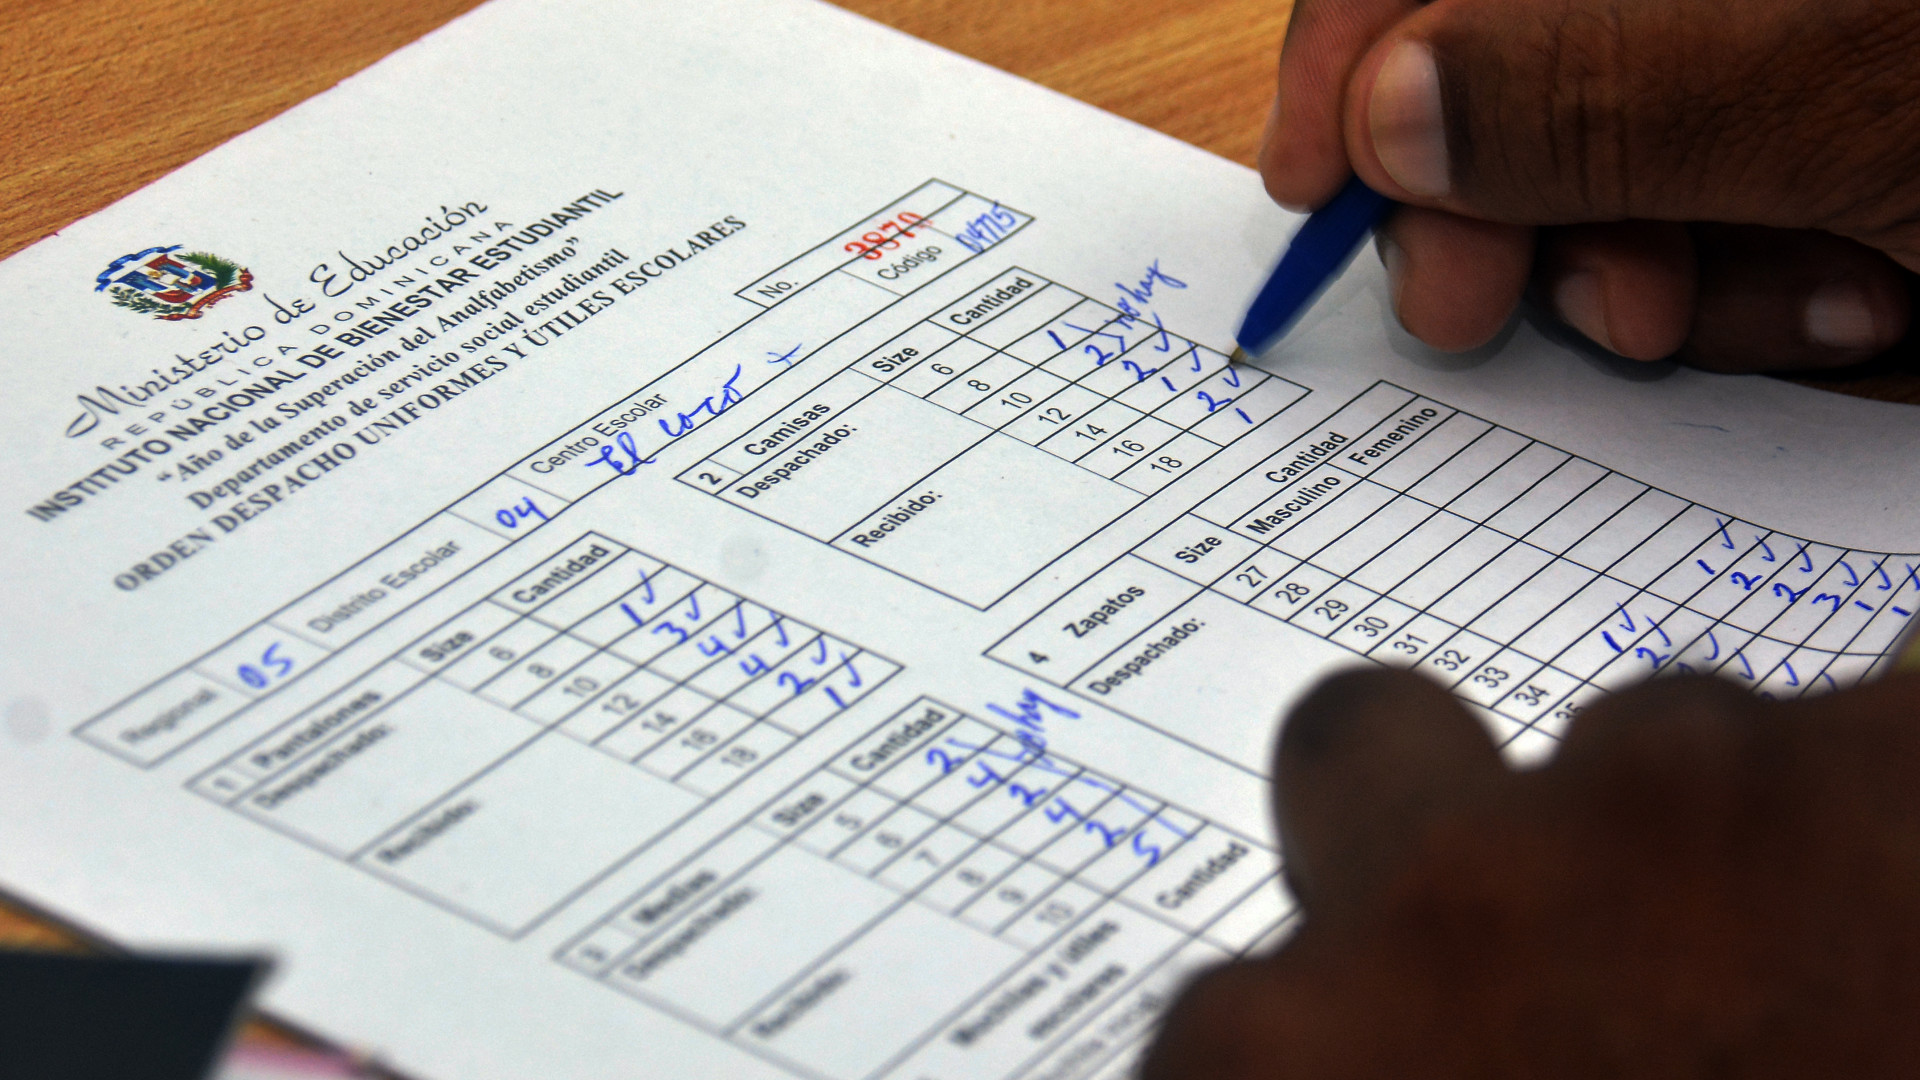 Ministerio de Educación
REPÚBLICA DOMINICANA
INSTITUTO NACIONAL DE BIENESTAR ESTUDIANTIL
“Año de la Superación del Analfabetismo”
Departamento de servicio social estudiantil
ORDEN DESPACHO UNIFORMES Y ÚTILES ESCOLARES
No.
Código 04775
Regional 05 Distrito Escolar 04 Centro Escolar El coco
1 Pantalones Size Cantidad
Despachado:
Recibido:
6
8 1 ✓
10 3 ✓
12 4 ✓
14 4 ✓
16 2 ✓
18 1 ✓
2 Camisas Size Cantidad
Despachado:
Recibido:
6
8 1
10 2 no hay
12 2 ✓
14 1 ✓
16 2 ✓
18 1
3 Medias Size Cantidad
Despachado:
Recibido:
5 2
6 4
7 2
8 4
9 2
10 5
4 Zapatos Size Cantidad
Masculino Femenino
Despachado:
27
28
29
30
31
32
33
34
35
1 ✓ 1 ✓
2 ✓ 2 ✓
2 ✓
3 ✓
1 ✓
1
Mochilas y útiles escolares Cantidad